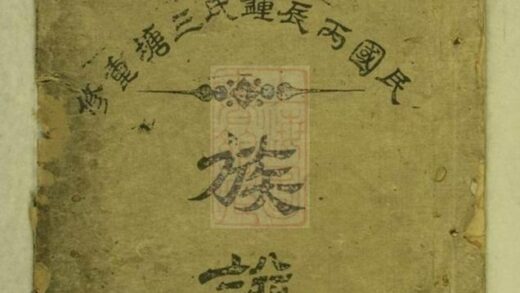 民國丙辰鍾氏三塘重修
族譜